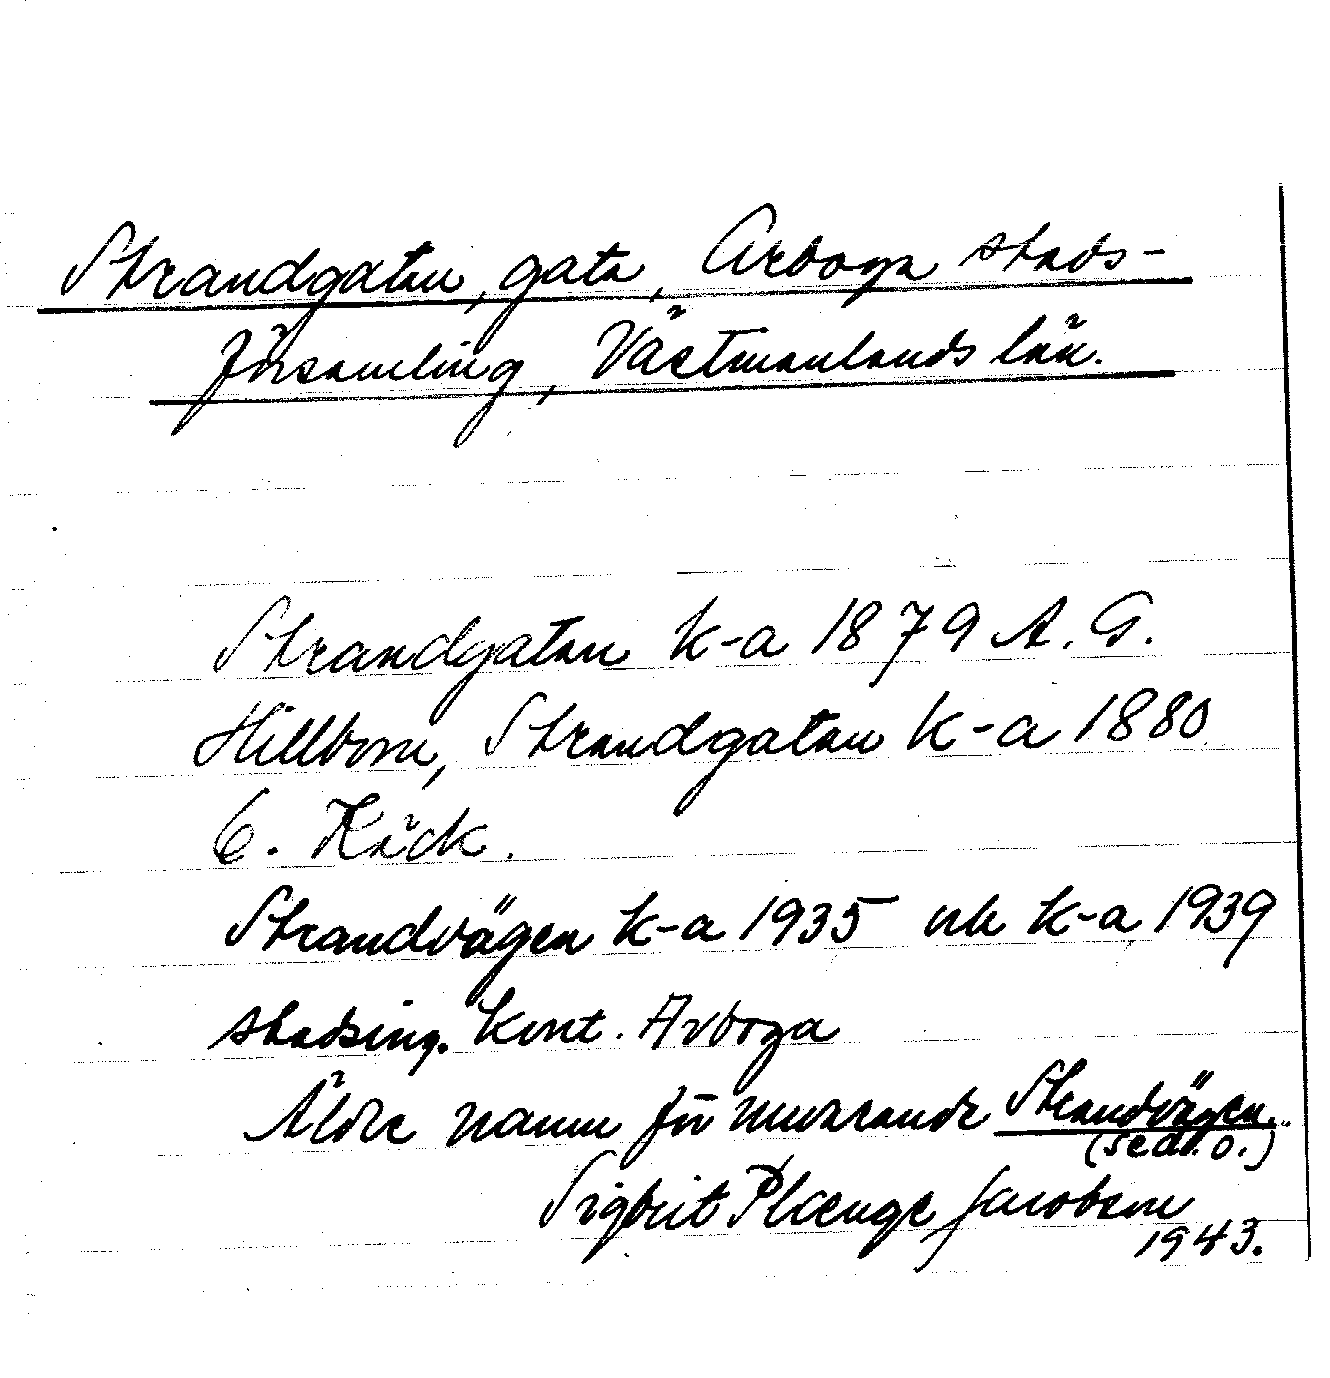 Strandgatan, gata, Arboga stads-
församling, Västmanlands län.
Strandgatan k-a 1879 A. G.
Hillbom, Strandgatan k-a 1880
C. Käck.
Strandvägen k-a 1935 och k-a 1939
stadsing. kont. Arboga
Äldre namn för nuvarande Strandvägen.
(se d. o.)
Sigbrit Plænge Jacobson
1943.